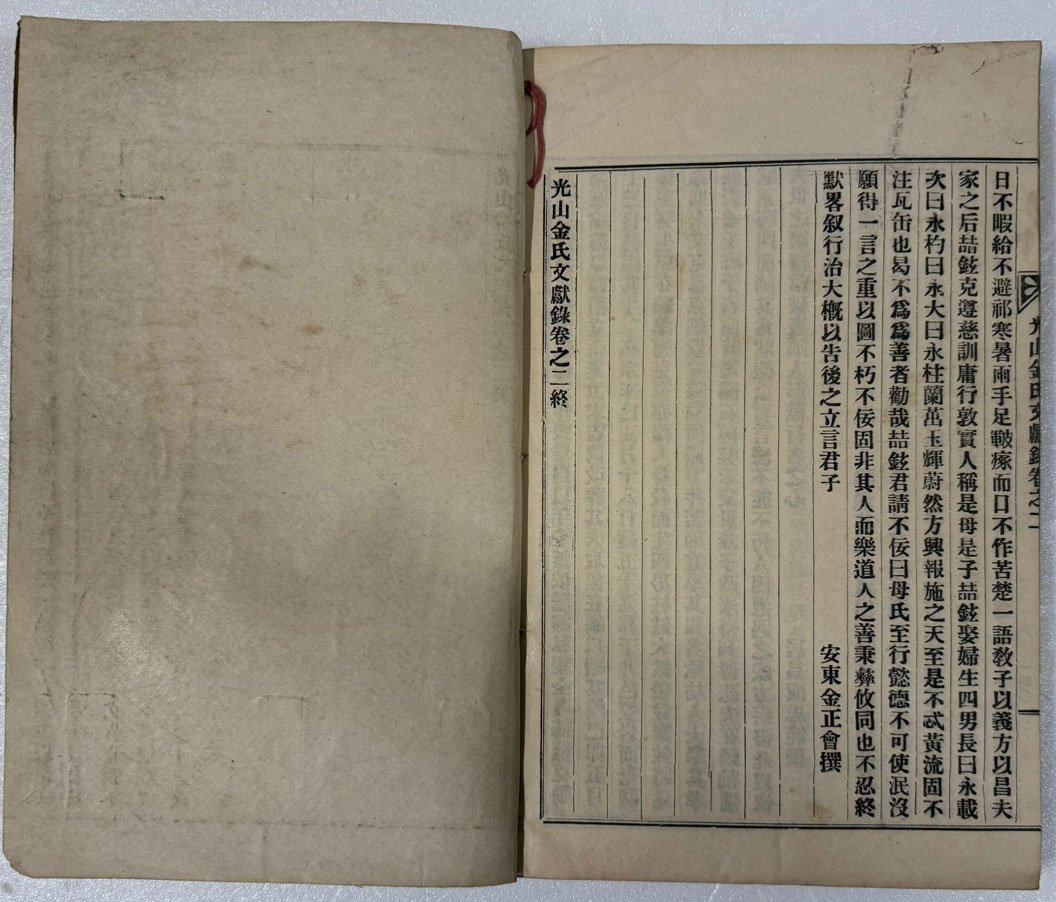 光山金氏文獻錄卷之二
日不暇給不避祁寒暑雨手足皸瘃而口不作苦楚一語敎子以義方以昌夫
家之后喆鉉克遵慈訓庸行敦實人稱是母是子喆鉉娶婦生四男長曰永載
次曰永杓曰永大曰永柱蘭萬玉輝蔚然方興報施之天至是不忒黃流固不
注瓦缶也曷不爲爲善者勸哉喆鉉君請不侫曰母氏至行懿德不可使泯沒
願得一言之重以圖不朽不侫固非其人而樂道人之善秉彝攸同也不忍終
默畧叙行治大槪以告後之立言君子
安東金正會撰
光山金氏文獻錄卷之二終